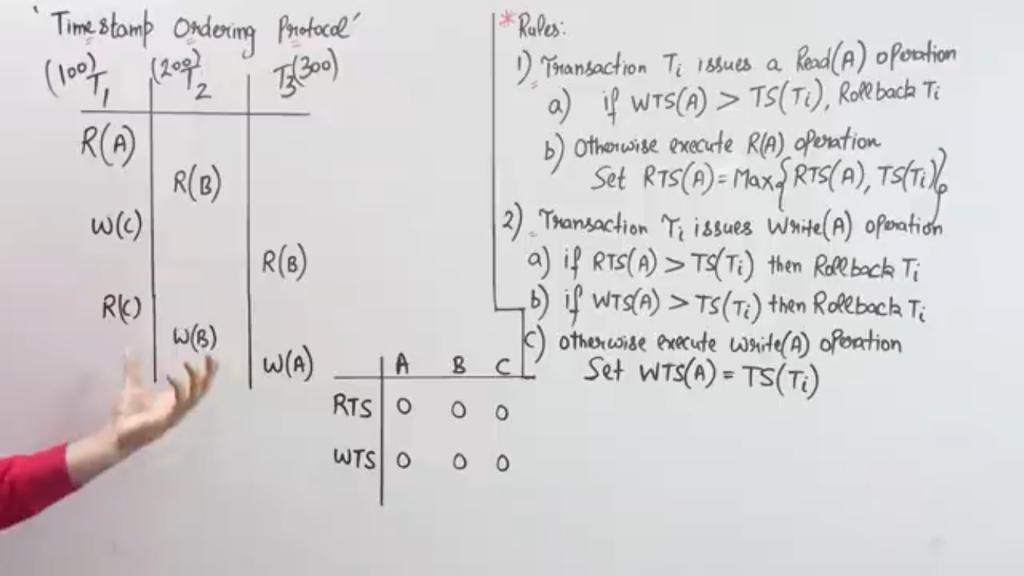 'Timestamp Ordering Protocol'
(100) T1 (200) T2 T3 (300)
R(A)
R(B)
W(C)
R(B)
R(C)
W(B)
W(A)
A B C
RTS 0 0 0
WTS 0 0 0
* Rules:
1) Transaction Ti issues a Read(A) operation
a) if WTS(A) > TS(Ti), Rollback Ti
b) Otherwise execute R(A) operation
Set RTS(A) = Max{RTS(A), TS(Ti)}
2) Transaction Ti issues Write(A) operation
a) if RTS(A) > TS(Ti) then Rollback Ti
b) if WTS(A) > TS(Ti) then Rollback Ti
c) otherwise execute write(A) operation
Set WTS(A) = TS(Ti)